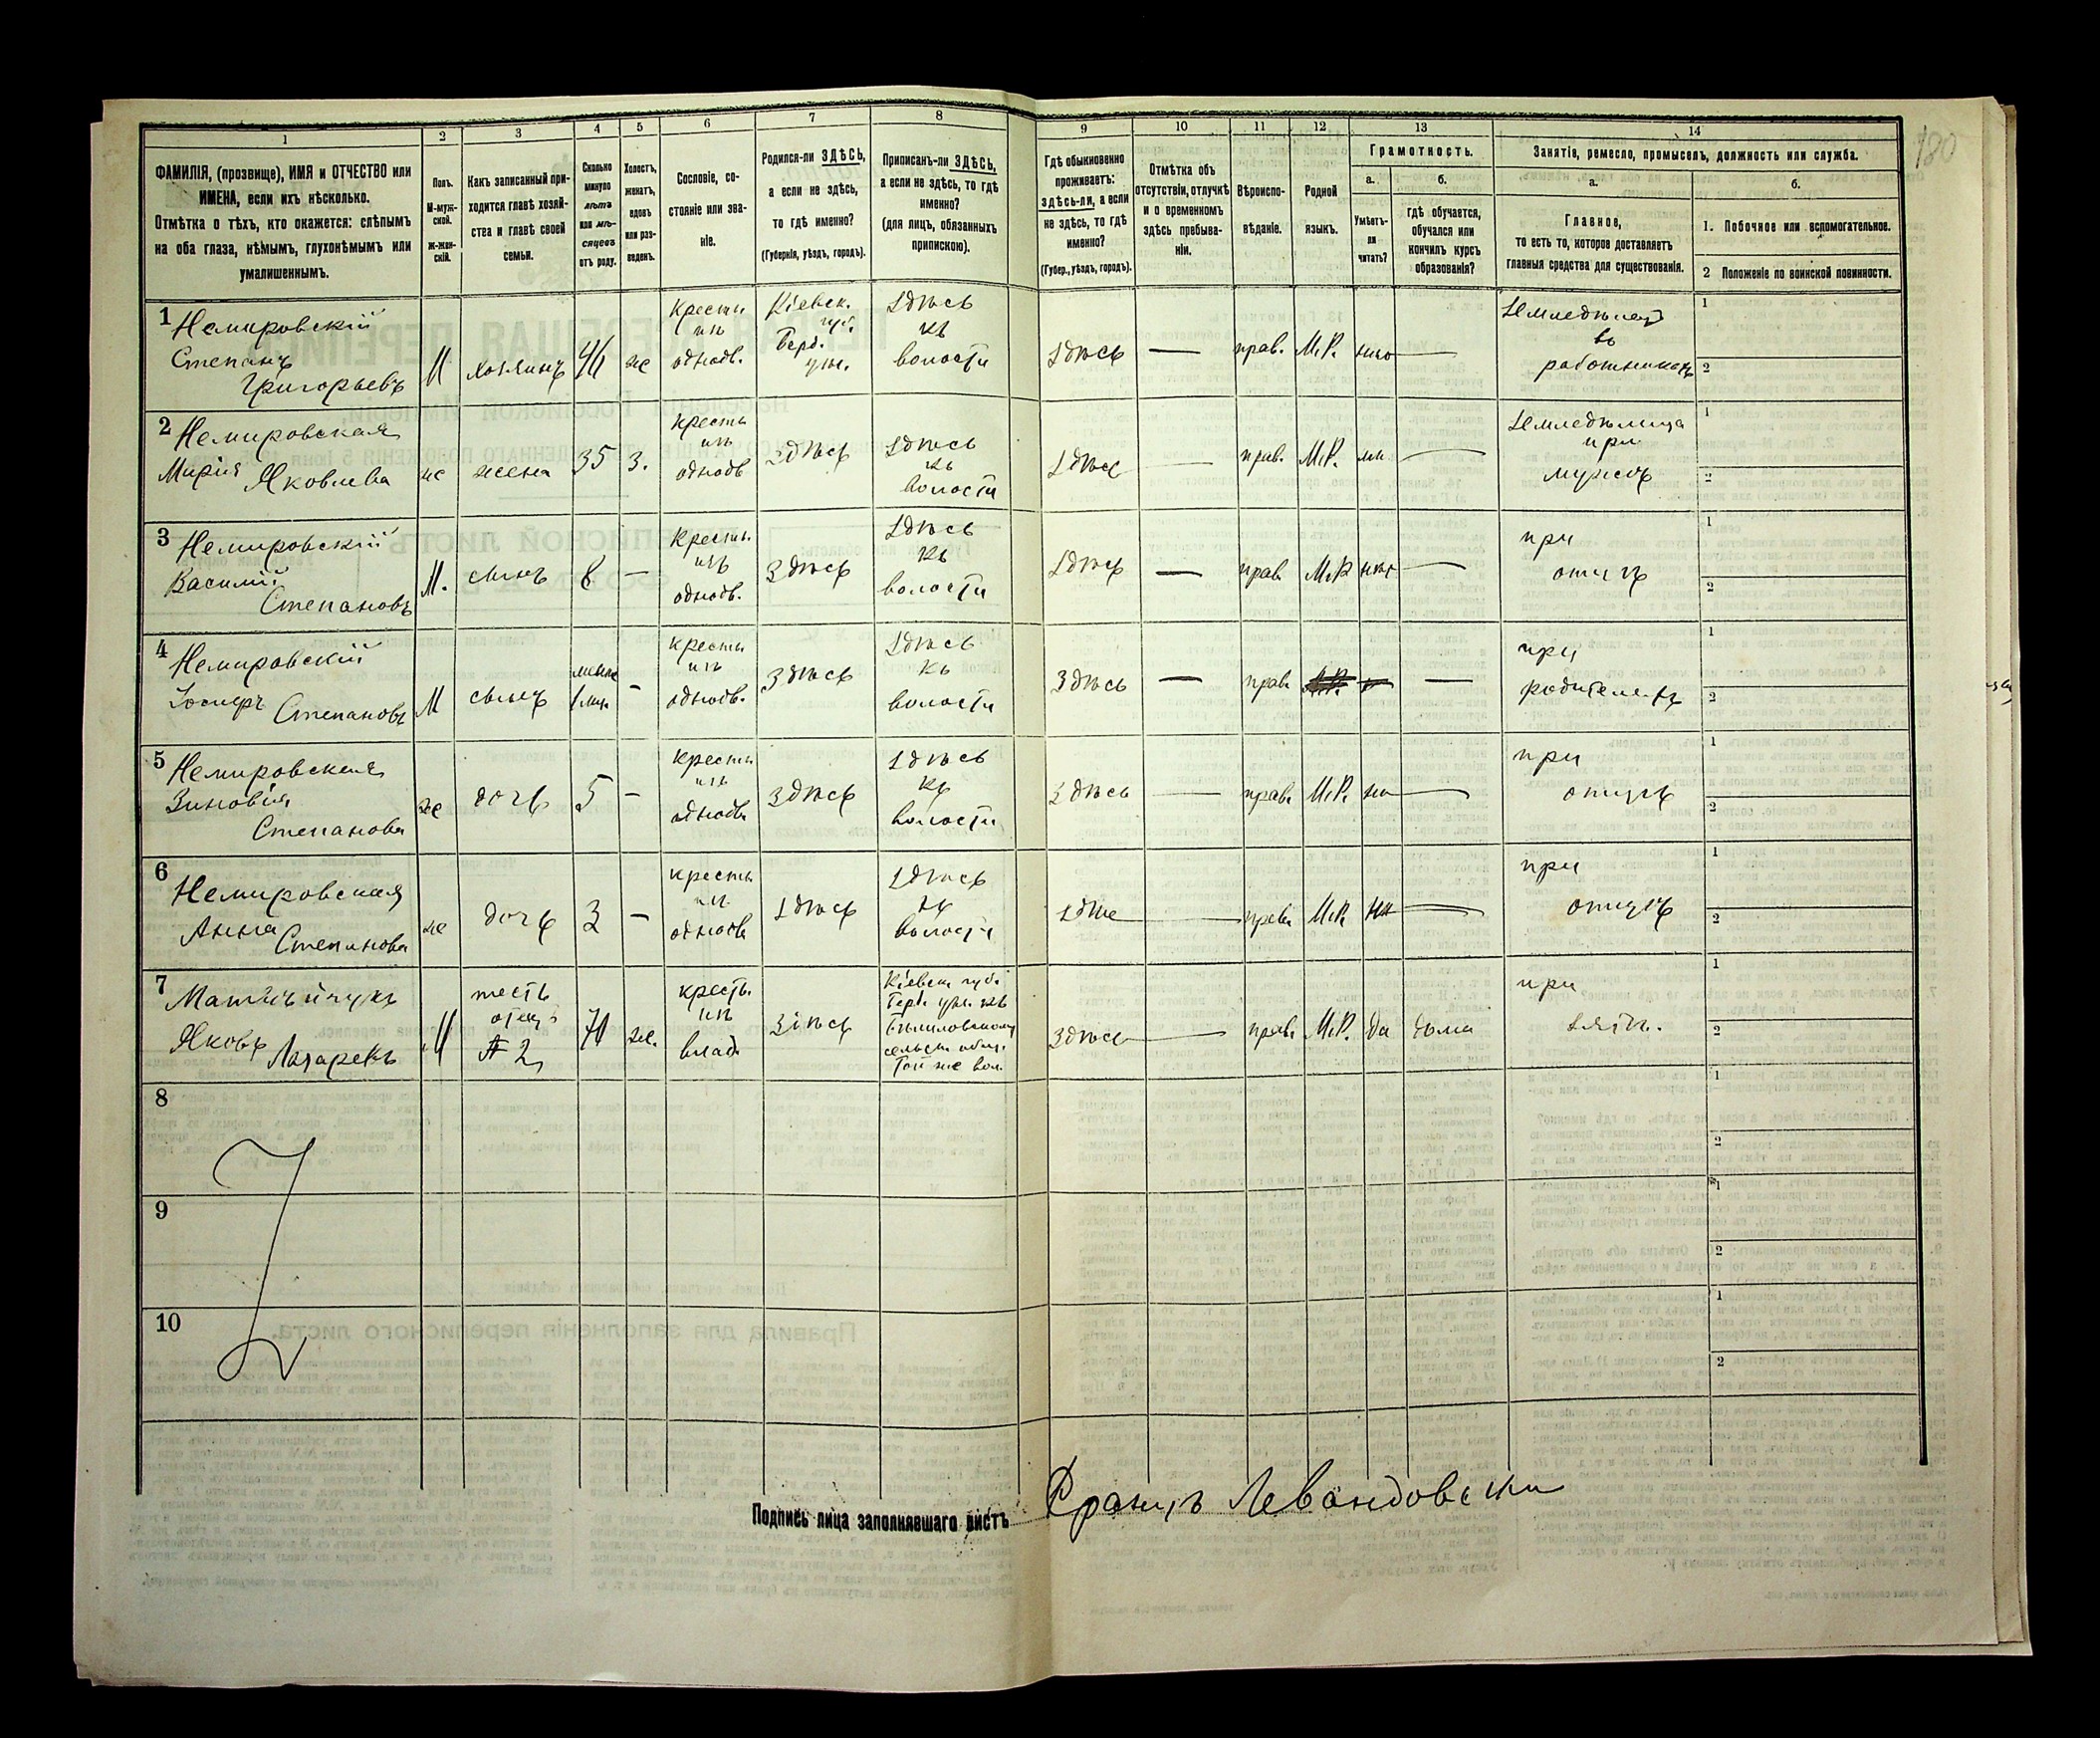 180
1
2
3
4
5
6
7
8
9
10
11
12
13
14
ФАМИЛІЯ, (прозвище), ИМЯ и ОТЧЕСТВО или
ИМЕНА, если ихъ нѣсколько.
Отмѣтка о тѣхъ, кто окажется: слѣпымъ
на оба глаза, нѣмымъ, глухонѣмымъ или
умалишеннымъ.
Полъ.
М-муж-
ской.
ж-жен-
скій.
Какъ записанный при-
ходится главѣ хозяй-
ства и главѣ своей
семьи.
Сколько
минуло
лѣтъ
или мѣ-
сяцевъ
отъ роду.
Холостъ,
женатъ,
вдовъ
или раз-
веденъ.
Сословіе, со-
стояніе или зва-
ніе.
Родился-ли ЗДѢСЬ,
а если не здѣсь,
то гдѣ именно?
(Губернія, уѣздъ, городъ).
Приписанъ-ли ЗДѢСЬ,
а если не здѣсь, то гдѣ
именно?
(для лицъ, обязанныхъ
припискою).
Гдѣ обыкновенно
проживаетъ:
здѣсь-ли, а если
не здѣсь, то гдѣ
именно?
(Губер., уѣздъ, городъ).
Отмѣтка объ
отсутствіи, отлучкѣ
и о временномъ
здѣсь пребыва-
ніи.
Вѣроиспо-
вѣданіе.
Родной
языкъ.
Грамотность.
а.
Умѣетъ-
ли
читать?
б.
гдѣ обучается,
обучался или
кончилъ курсъ
образованія?
Занятіе, ремесло, промыселъ, должность или служба.
а.
Главное,
то есть то, которое доставляетъ
главныя средства для существованія.
б.
1. Побочное или вспомогательное.
2 Положеніе по воинской повинности.
1
Немировскій
Степанъ
Григорьевъ
М
хозяинъ
же
Кресть
изъ
однодв.
Кіевск.
губ.
Берд.
уѣз.
Здѣсь
къ
волости
Здѣсь
—
прав.
М.Р.
—
въ
работникахъ
1
2
2
Немировская
Марія Яковлева
же
жена
35
З.
Кресть
изъ
однодв
Здѣсь
Здѣсь
къ
волости
Здѣсь
—
прав.
М.Р.
—
при
мужѣ
1
2
3
Немировскій
Василій
Степановъ
М.
сынъ
8
—
Кресть.
изъ
однодв.
Здѣсь
Здѣсь
къ
волости
Здѣсь
—
прав
М.Р.
—
при
отцѣ
1
2
4
Немировскій
Степановъ
М
сынъ
—
кресть
изъ
однодв.
Здѣсь
Здѣсь
къ
волости
Здѣсь
—
прав.
—
при
родителяхъ
1
2
5
Немировская
Зиновія
Степанова
же
дочь
5
—
кресть
изъ
однодв.
Здѣсь
Здѣсь
къ
волости
Здѣсь
—
прав.
М.Р.
—
при
отцѣ
1
2
6
Немировская
Анна Степанова
же
дочь
3
—
кресть
изъ
однодв
Здѣсь
Здѣсь
къ
волости
—
прав.
М.Р.
—
при
отцѣ
1
2
7
Яковъ
М
тесть
№ 2
же.
кресть.
изъ
влад.
Здѣсь
Кіевск. губ.
Берд. уѣз. къ
той же вол.
Здѣсь
—
прав.
М.Р.
да
дома
при
зятѣ.
1
2
8
1
2
9
1
2
10
1
2
Подпись лица заполнявшаго листъ
Францъ Левандовски